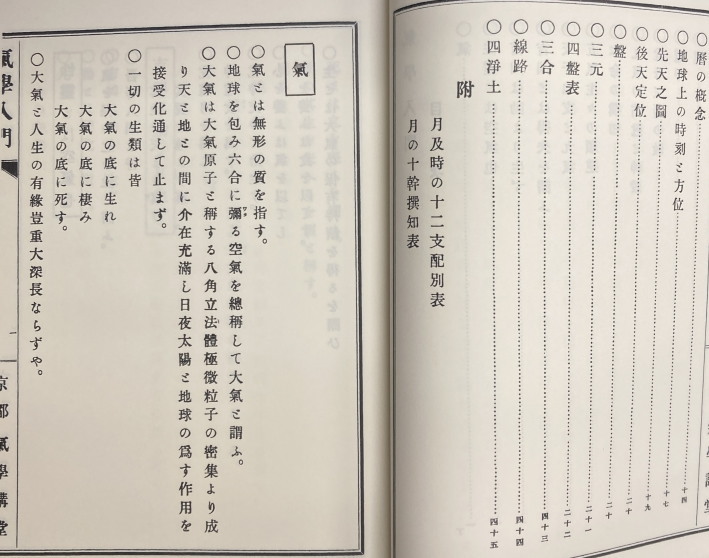 ○曆の概念……十四
○地球上の時刻と方位……十七
○先天之圖……十九
○後天定位……二十
○盤……二十
○三元……二十一
○四盤表……二十二
○三合……四十三
○線路……四十四
○四淨土……四十五
附
月及時の十二支配別表
月の十幹撰知表
氣
○氣とは無形の質を指す。
○地球を包み六合に彌る空氣を總稱して大氣と謂ふ。
○大氣は大氣原子と稱する八角立法體極微粒子の密集より成
り天と地との間に介在充滿し日夜太陽と地球の爲す作用を
接受化通して止まず。
○一切の生類は皆
大氣の底に生れ
大氣の底に棲み
大氣の底に死す。
○大氣と人生の有緣豈重大深長ならずや。
氣學入門
一
京都氣學講堂